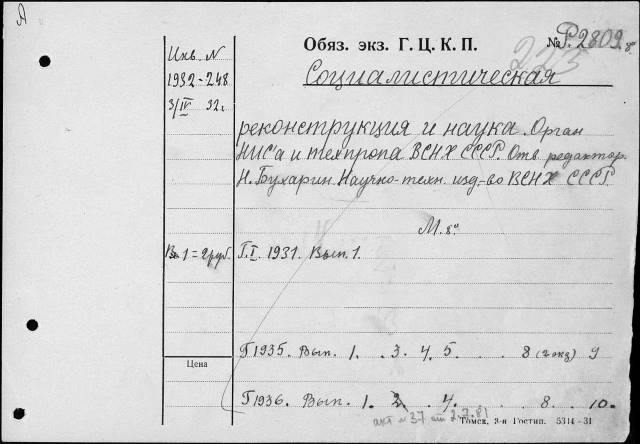 А
Обяз. экз. Г. Ц. К. П.
№ Р2809 8.
225
Инв. N
1932-248
3/IV 32 г.
Социалистическая
реконструкция и наука. Орган
НИС'а и техпропа ВСНХ СССР. Отв. редактор.
Н. Бухарин. Научно-техн. изд-во ВСНХ СССР.
М. 8°
В. 1 = 2 руб.
Г. I. 1931. Вып. 1.
Цена
Г 1935. Вып. 1. . 3. 4. 5. . . 8 (2 экз) 9
Г 1936. Вып. 1. 2. . 4. . . . 8. . 10.
акт № 37 от 2.7.81
Томск, 3-я Гостип. 5314-31